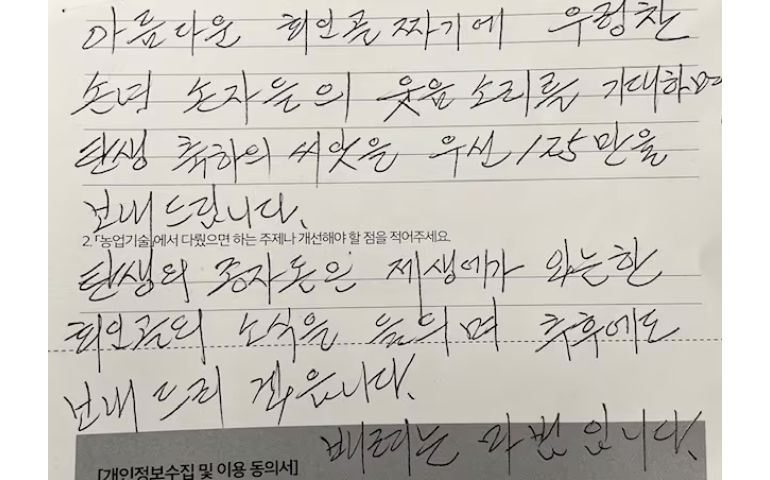 아름다운 회인골 짜기에 우렁찬
손녀 손자들의 웃음 소리를 기대하며
탄생 축하의 씨앗을 우선 125만을
보내 드립니다.
2. 「농업기술」에서 다뤘으면 하는 주제나 개선해야 할 점을 적어주세요.
탄생의 종자돈은 제생에가 완는한
회인골의 소식을 들으며 추후에도
보내 드리 겠읍니다.
배려는 마법 입니다.
[개인정보수집 및 이용 동의서]